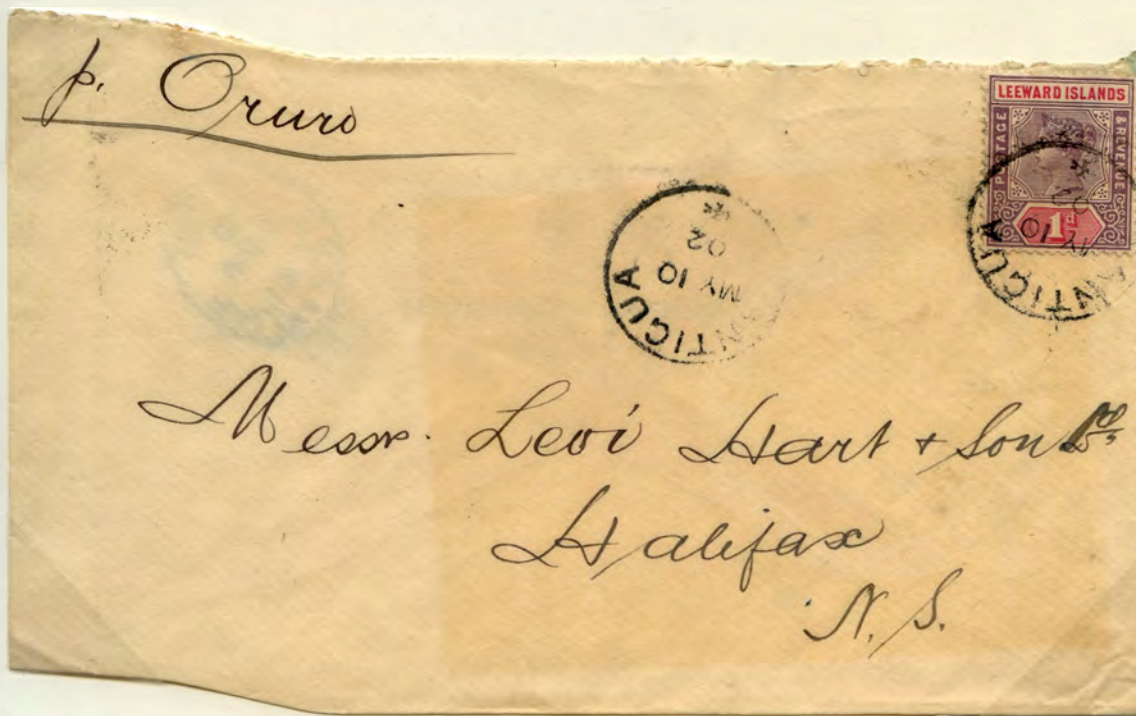 p. Oruro
LEEWARD ISLANDS
POSTAGE & REVENUE
1d
ANTIGUA
MY 10
02
ANTIGUA
MY 10
02
Messr. Levi Hart & Son Ld
Halifax
N.S.